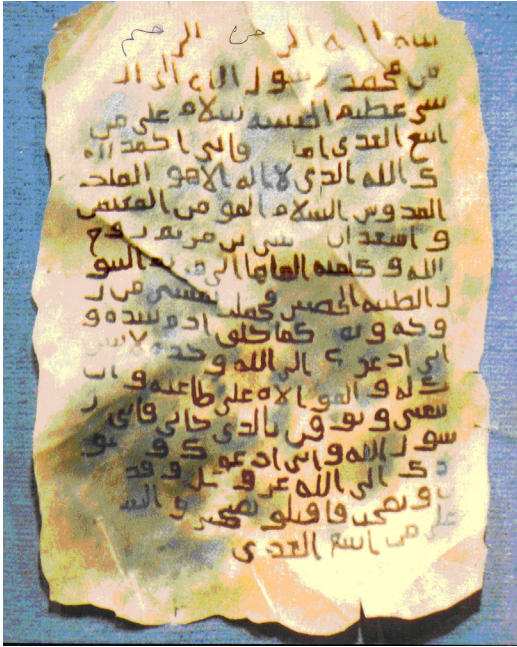 بسم الله الرحمن الرحيم
من محمد رسول الله الى النجا
شى عظيم الحبشه سلام على من
اتبع الهدى اما فانى احمد الي
ك الله الذى لا اله الا هو الملك
القدوس السلام المومن المهيمن
و اشهد ان عيسى بن مريم روح
الله و كلمته القاها الى مريم البتو
ل الطيبه الحصينه فحملت بعيسى من ر
وحه و كما خلق ادم بيده و
انى ادعوك الى الله وحده لا شر
يك له و الموالاه على طاعته و ان
تتبعنى و توقن بالذى جانى فانى ر
سول الله و انى ادعوك و جنو
دك الى الله عز و جل و قد
و نصحت فاقبلو نصيحتى و السلا
على من اتبع الهدى